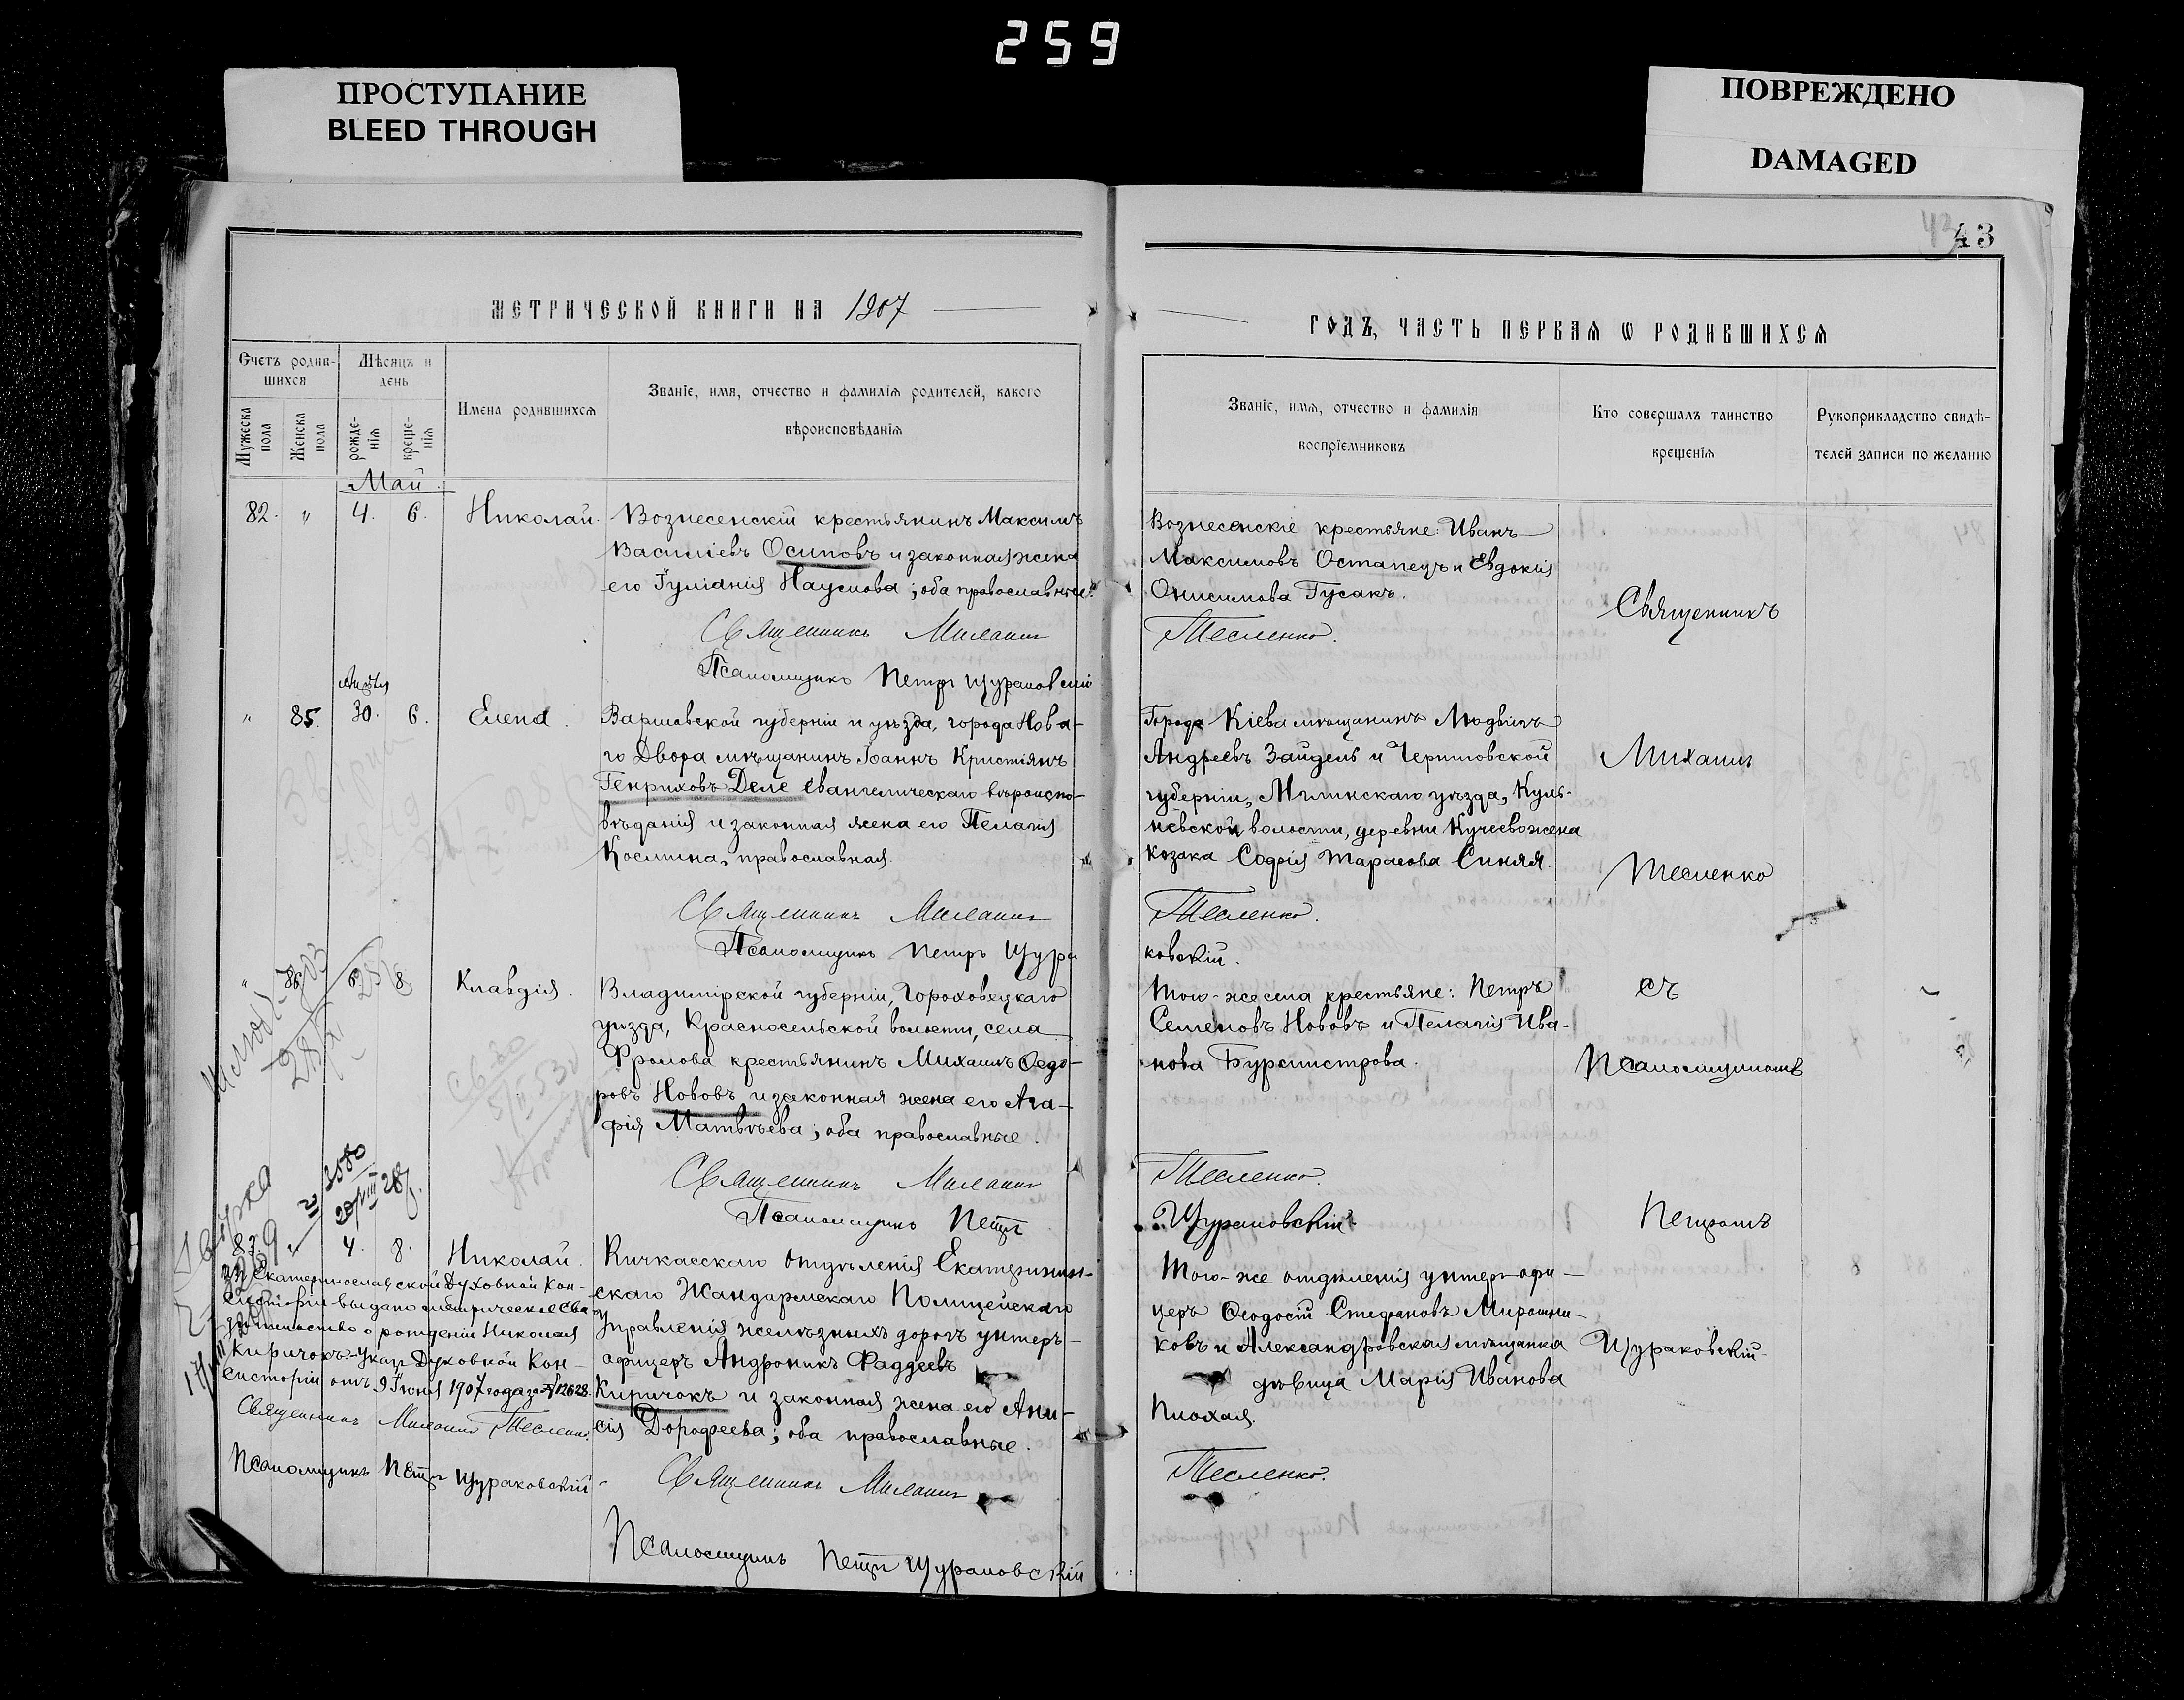 259
ПРОСТУПАНИЕ
BLEED THROUGH
ПОВРЕЖДЕНО
DAMAGED
43
МЕТРИЧЕСКОЙ КНИГИ НА 1907
ГОДЪ, ЧАСТЬ ПЕРВАЯ Ѡ РОДИВШИХСЯ
Счетъ родив-
шихся
Мужеска пола
Женска пола
Мѣсяцъ и
день
рожде-
нія
креще-
нія
Имена родившихся
Званіе, имя, отчество и фамилія родителей, какого
вѣроисповѣданія
Званіе, имя, отчество и фамилія
воспріемниковъ
Кто совершалъ таинство
крещенія
Рукоприкладство свидѣ-
телей записи по желанію
Май
82. " 4. 6. Николай. Вознесенскій крестьянинъ Максимъ
Василіевъ Осиповъ и законная жена
его Іуліанія Наумова; оба православные.
Священникъ Михаилъ
Псаломщикъ Петръ Щураковскій
Вознесенскіе крестьяне: Иванъ
Максимовъ Остапецъ и Евдокія
Онисимова Гусакъ.
Тесленко.
Апрѣля
" 85. 30. 6. Елена. Варшавской губерніи и уѣзда, города Нова-
го Двора мѣщанинъ Іоаннъ Кристіянъ
Генриховъ Деле евангелическаго вѣроиспо-
вѣданія и законная жена его Пелагія
Космина, православная.
Священникъ Михаилъ
Псаломщикъ Петръ Щура
Города Кіева мѣщанинъ Людвигъ
Андреевъ Зайдель и Черниговской
губерніи, Мглинскаго уѣзда, Куль-
невской волости, деревни Кучеево жена
козака Софія Тарасова Синяя.
Тесленко.
ковскій.
" 86. 6. 8. Клавдія. Владимірской губерніи, Гороховецкаго
уѣзда, Красносельской волости, села
Фролова крестьянинъ Михаилъ Ѳедо-
ровъ Нововъ и законная жена его Ага-
фія Матвѣева; оба православные.
Священникъ Михаилъ
Псаломщикъ Петръ
Того-же села крестьяне: Петръ
Семеновъ Нововъ и Пелагія Ива-
нова Бурмистрова.
Тесленко.
Щураковскій.
87. " 4. 8. Николай. Кичкасскаго отдѣленія Екатеринин-
скаго Жандармскаго Полицейскаго
Управленія желѣзныхъ дорогъ унтеръ-
офицеръ Андроникъ Фаддеевъ
Киричокъ и законная жена его Ани-
сія Дорофеева; оба православные.
Священникъ Михаилъ
Псаломщикъ Петръ Щураковскій
Того-же отдѣленія унтеръ-офи-
церъ Ѳеодосій Стефановъ Мирошни-
ковъ и Александровская мѣщанка
дѣвица Марія Иванова
Плохая.
Тесленко.
Священникъ
Михаилъ
Тесленко
съ
Псаломщикомъ
Петромъ
Щураковскій
Екатеринославской Духовной Кон-
систоріи выдано метрическое сви
дѣтельство о рожденіи Николая
Киричокъ. Указъ Духовной Кон-
систоріи отъ 9 Іюня 1907 года за № 12628.
Священникъ Михаилъ Тесленко.
Псаломщикъ Петръ Щураковскій